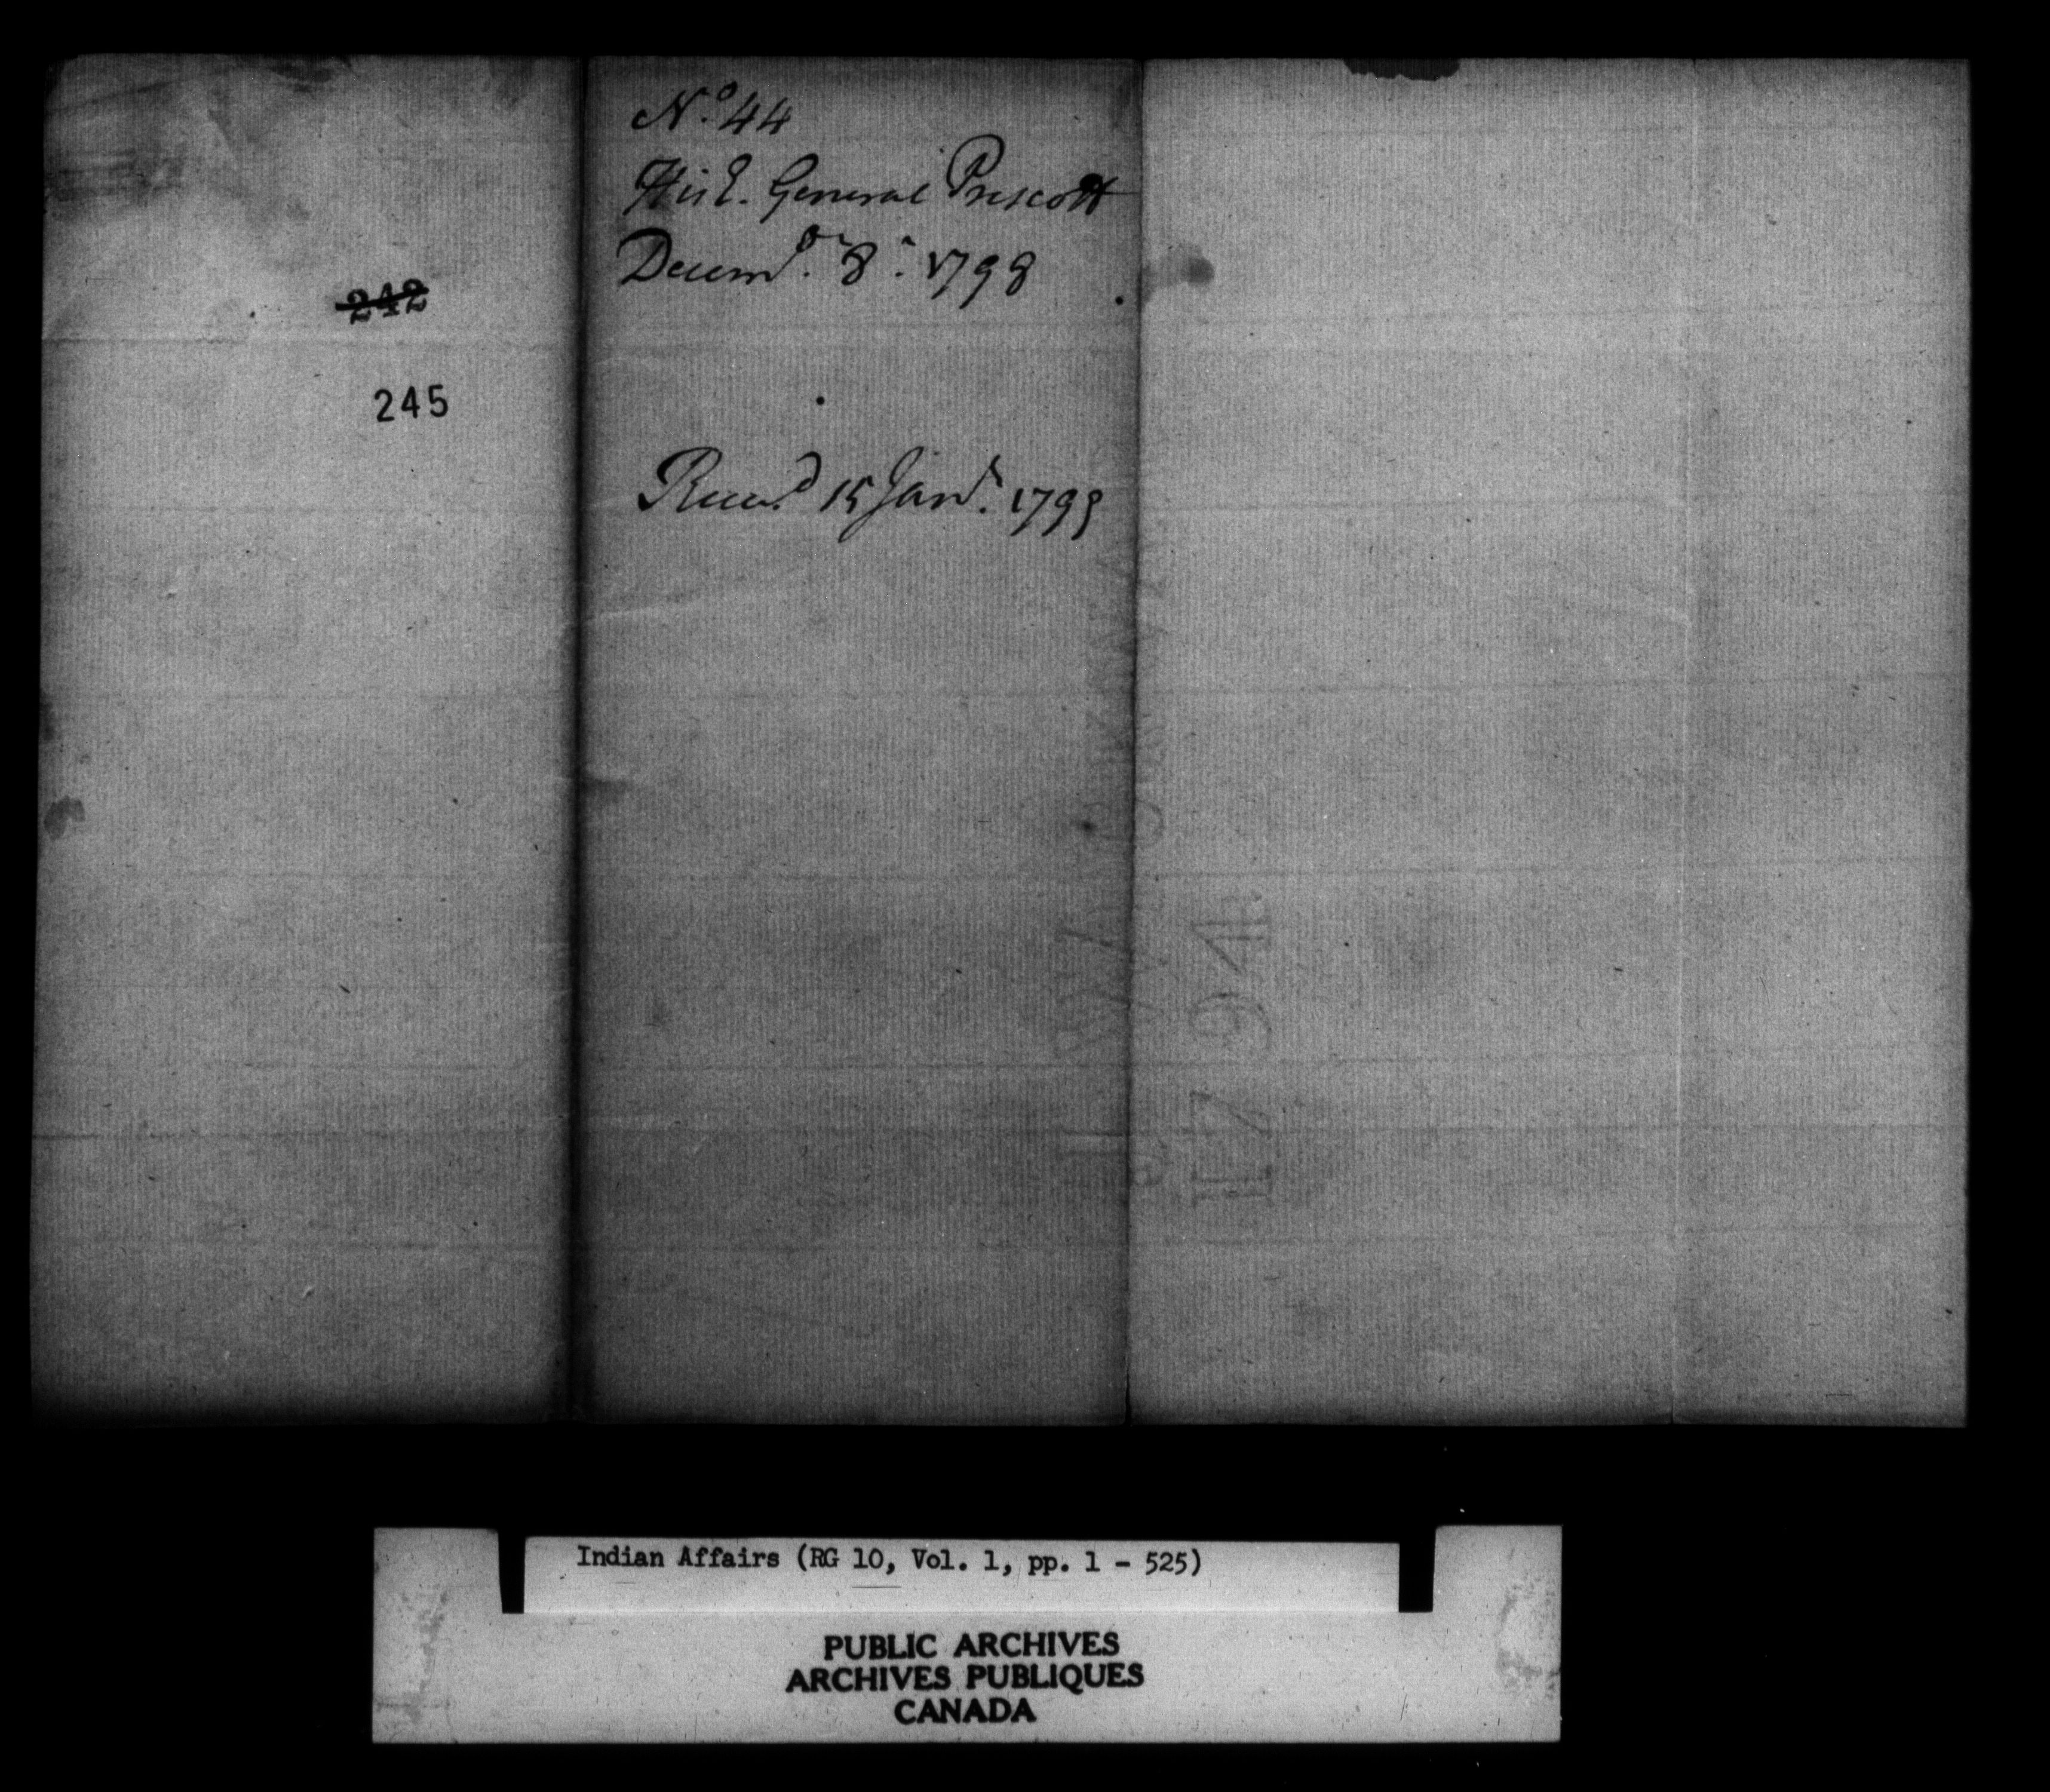 242
245
No. 44
His E. General Prescott
Decemr. 8: 1798
Recevd 15 Janr. 1799
1794
Indian Affairs (RG 10, Vol. 1, pp. 1 - 525)
PUBLIC ARCHIVES
ARCHIVES PUBLIQUES
CANADA